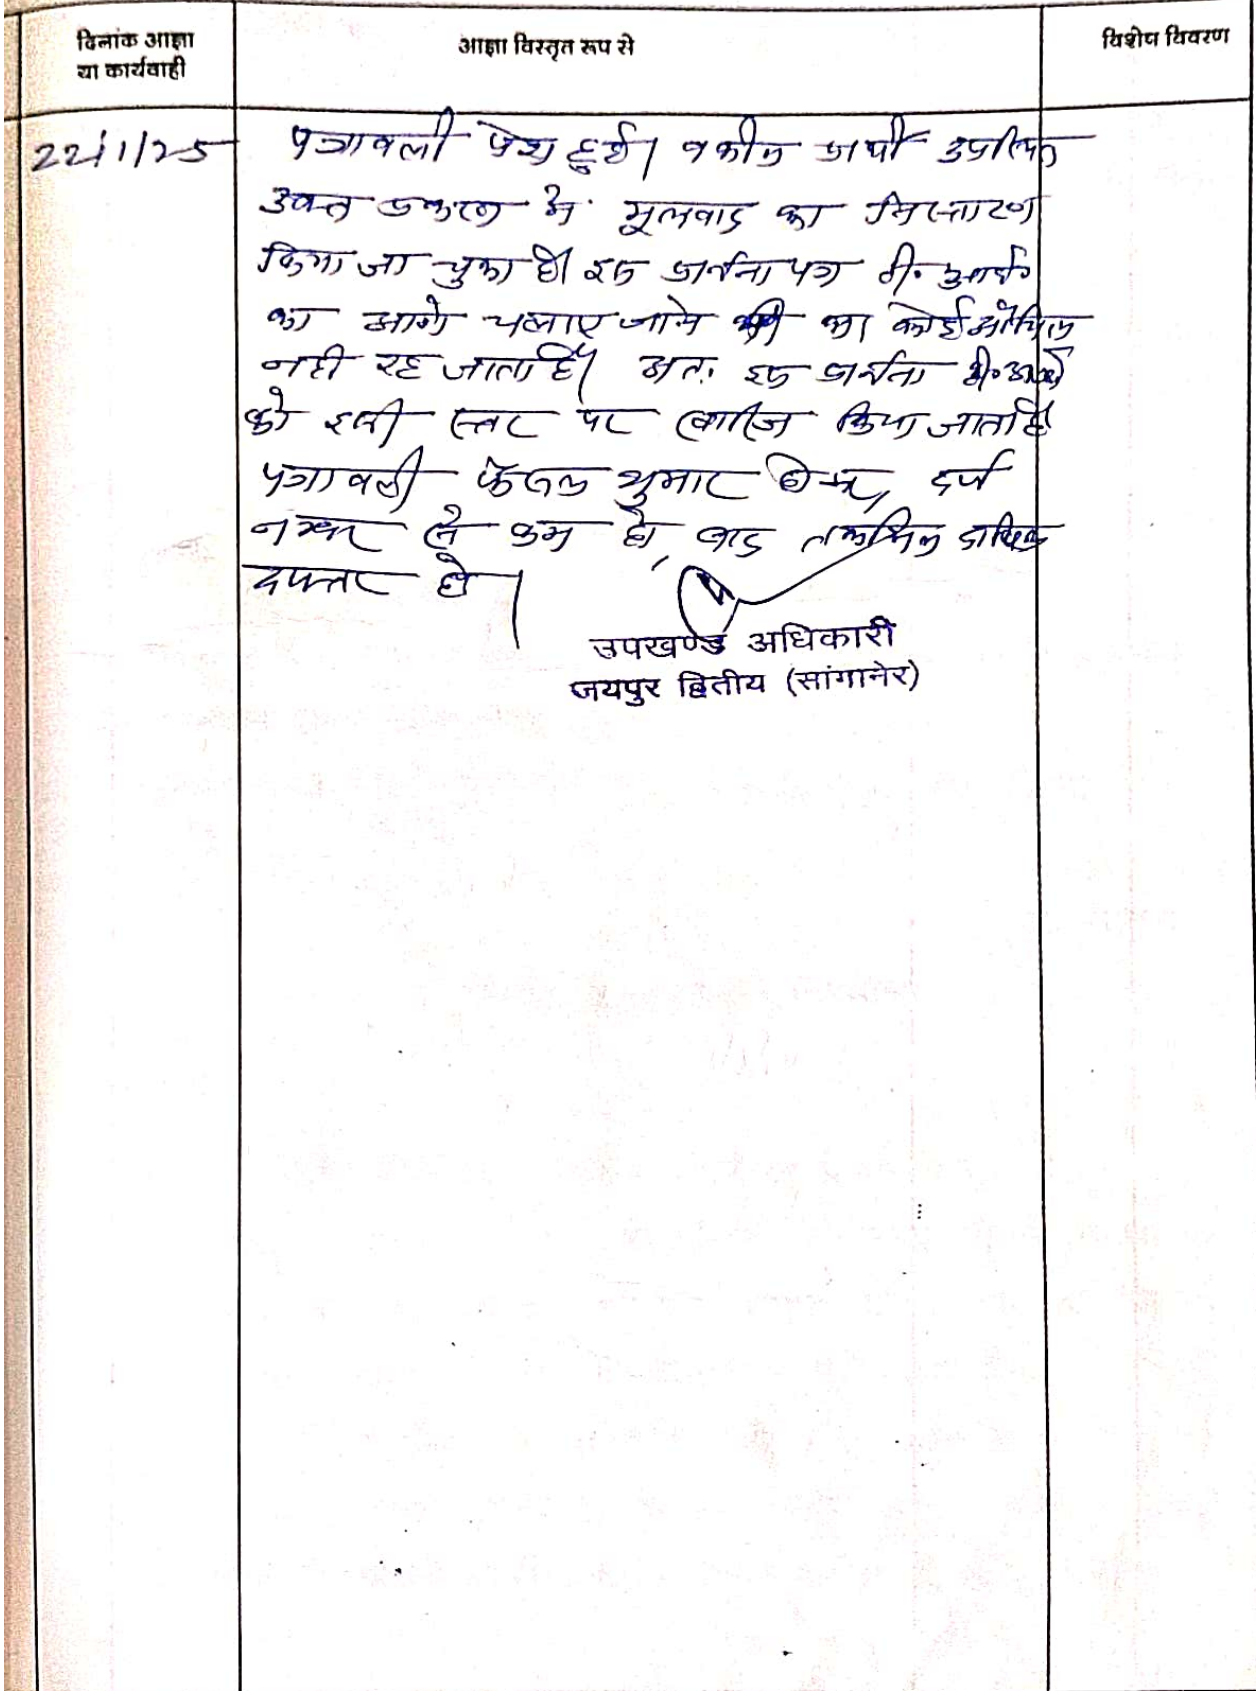 दिनांक आज्ञा
या कार्यवाही
आज्ञा विस्तृत रूप से
विशेष विवरण
22/1/25
पत्रावली पेश हुई। वकील प्रार्थी उपस्थित
उक्त प्रकरण में मूलवाद का निस्तारण
किया जा चुका है। इस प्रार्थना पत्र टी. आई.
का आगे चलाए जाने का कोई औचित्य
नही रह जाता है। अतः इस प्रार्थना टी. आई.
को इसी स्तर पर खारिज किया जाता है
पत्रावली फैसल शुमार होकर, दर्ज
नम्बर से कम हो, बाद तकमिल दाखिल
दफ्तर हो।
उपखण्ड अधिकारी
जयपुर द्वितीय (सांगानेर)